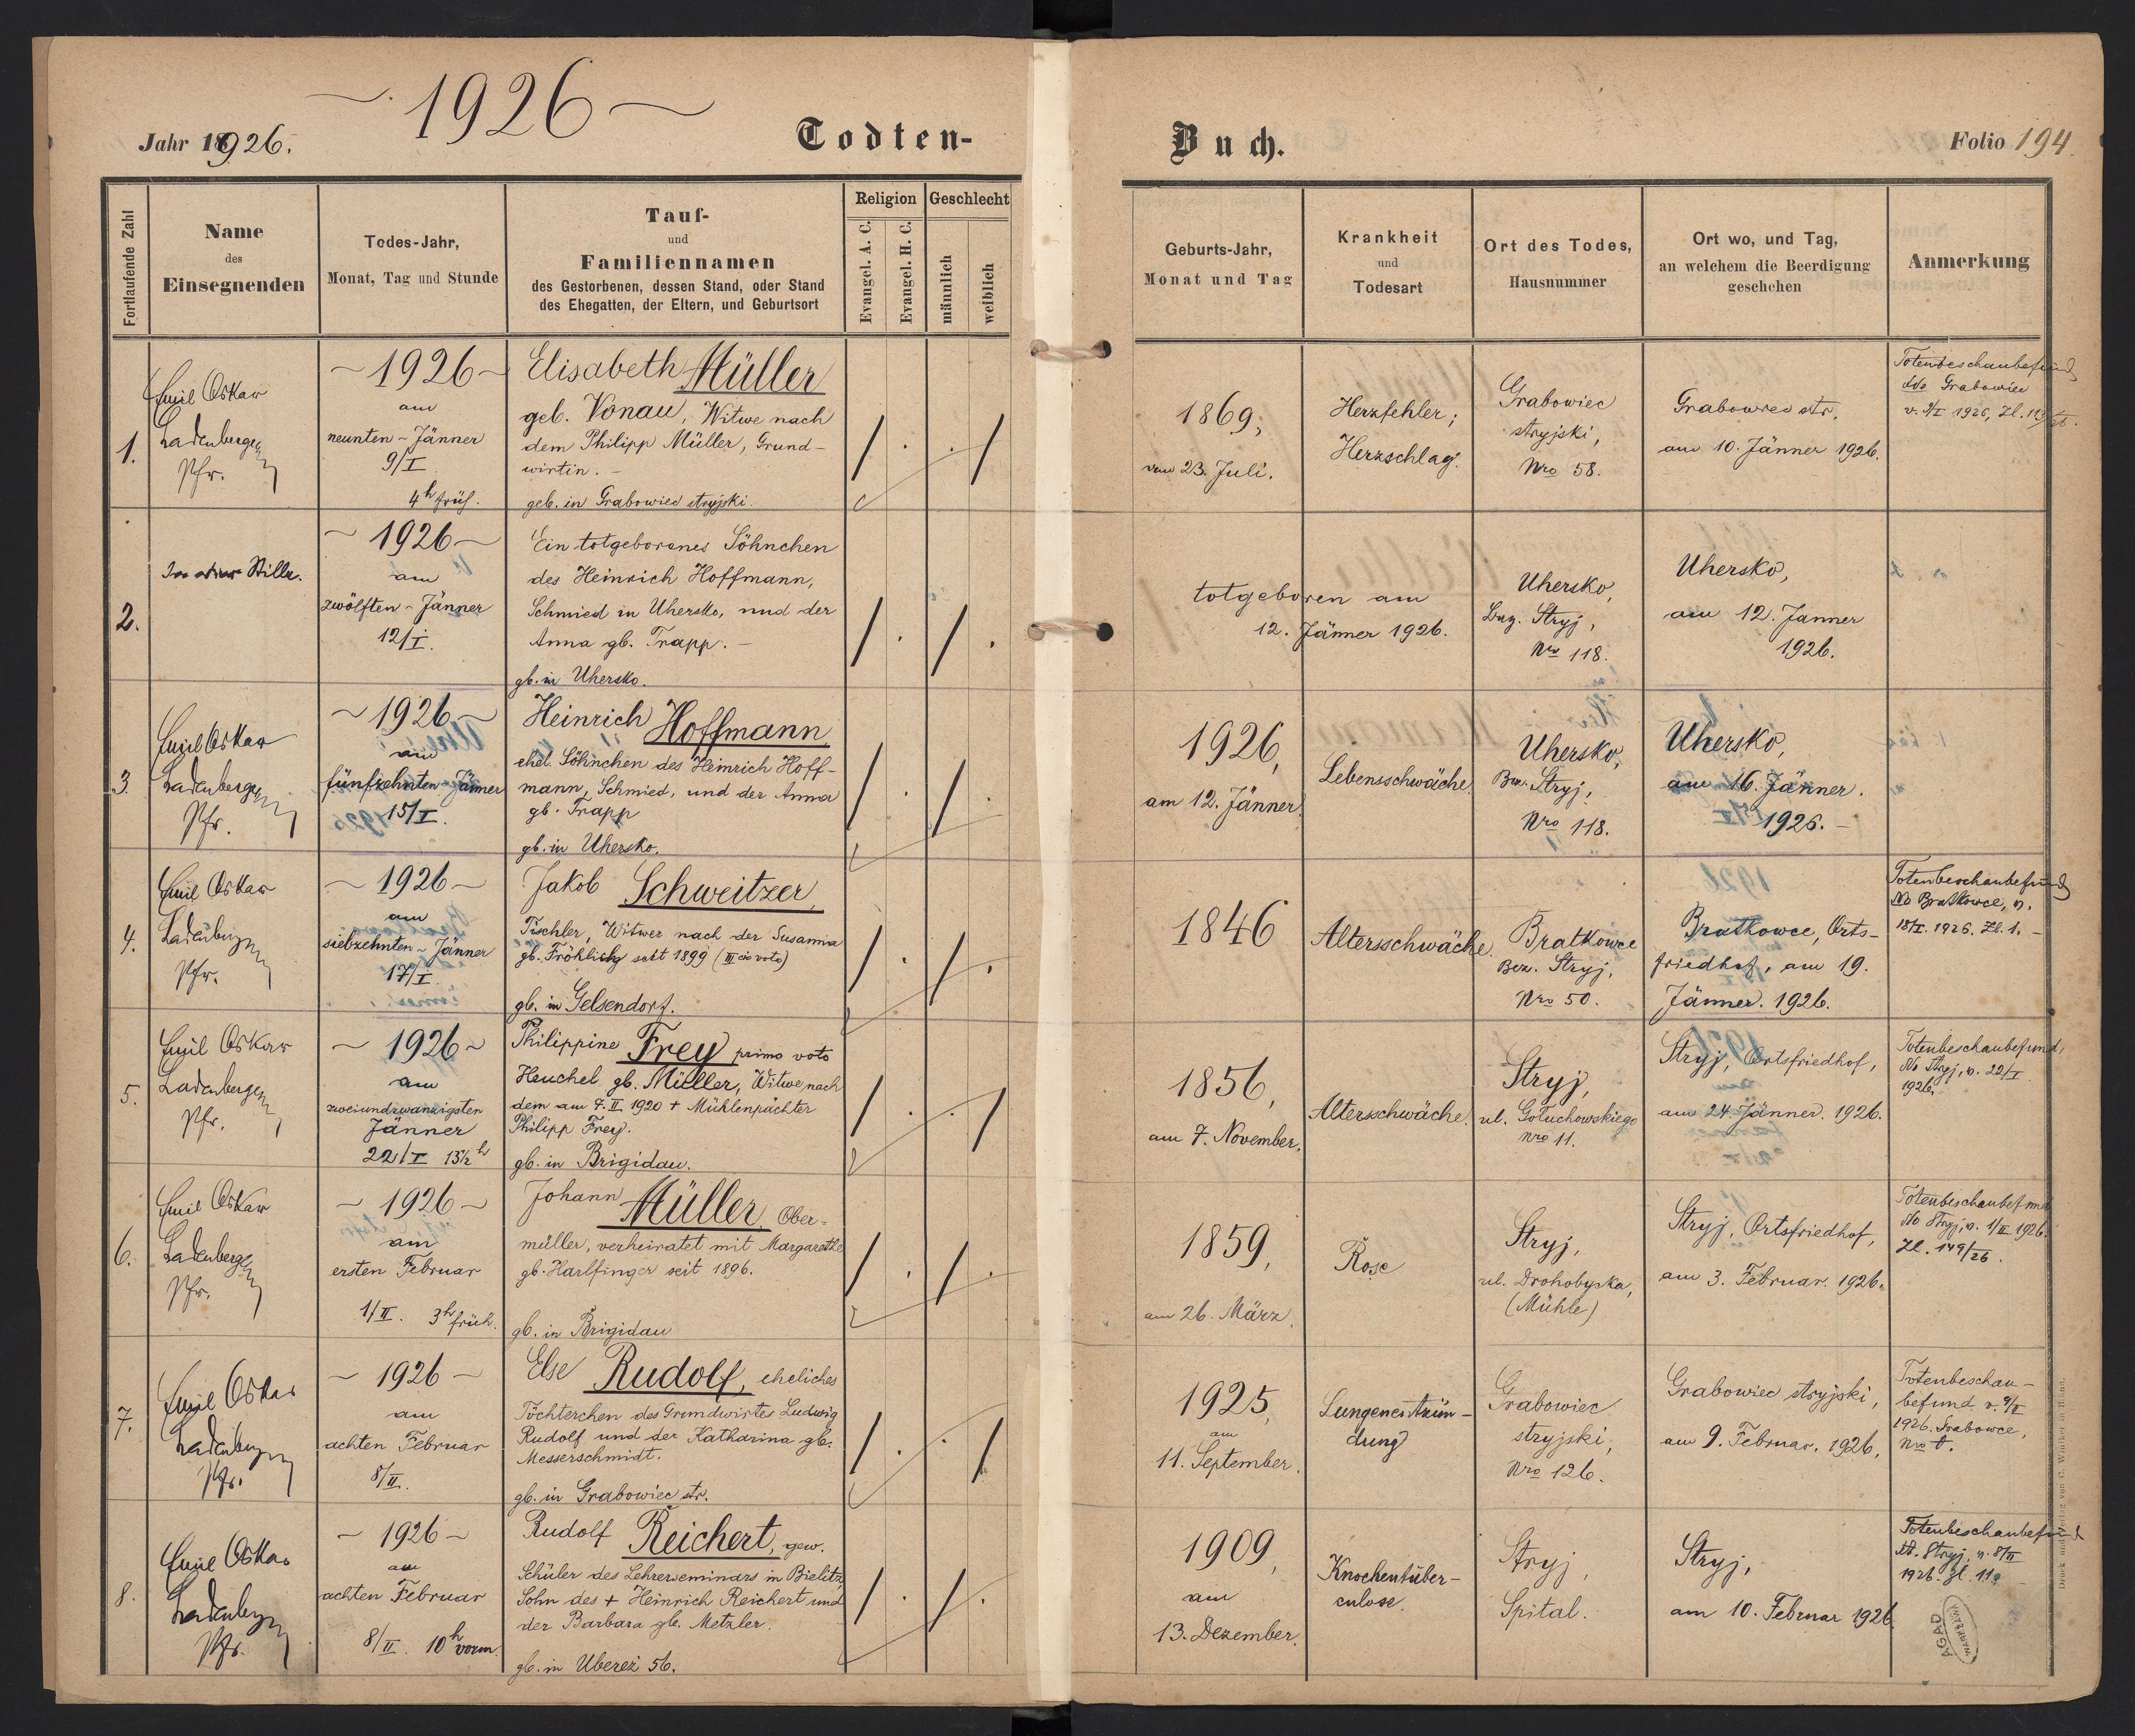 1926
Jahr 1926.
Todten-
Buch.
Folio 194
Fortlaufende Zahl
Name
des
Einsegnenden
Todes-Jahr,
Monat, Tag und Stunde
Tauf-
und
Familiennamen
des Gestorbenen, dessen Stand, oder Stand
des Ehegatten, der Eltern, und Geburtsort
Religion
Evangel. A. C.
Evangel. H. C.
Geschlecht
männlich
weiblich
Geburts-Jahr,
Monat und Tag
Krankheit
und
Todesart
Ort des Todes,
Hausnummer
Ort wo, und Tag,
an welchem die Beerdigung
geschehen
Anmerkung
1.
Emil Oskar
Ladenberger
Pfr.
1926
am
neunten - Jänner
9/I
4h früh.
Elisabeth Müller
geb. Vonau, Witwe nach
dem Philipp Müller, Grund-
wirtin. -
geb. in Grabowiec stryjski.
1869,
vom 23. Juli.
Herzfehler;
Herzschlag.
Grabowiec
stryjski,
Nro 58.
Grabowiec str.
am 10. Jänner 1926.
Totenbeschaubefund
ddo Grabowiec
v. 9/I 1926, Zl.
2.
Stille.
1926
am
zwölften - Jänner
12/I.
Ein totgeborenes Söhnchen
des Heinrich Hoffmann,
Schmied in Uhersko, und der
Anna gb. Trapp. -
gb. in Uhersko.
totgeboren am
12. Jänner 1926.
Uhersko,
Bez. Stryj,
Nro 118.
Uhersko,
am 12. Jänner
1926.
3.
Emil Oskar
Ladenberger
Pfr.
1926
am
fünfzehnten - Jänner
15/I.
Heinrich Hoffmann
ehel. Söhnchen des Heinrich Hoff-
mann, Schmied, und der Anna
gb. Trapp
gb. in Uhersko.
1926,
am 12. Jänner.
Lebensschwäche.
Uhersko,
Bez. Stryj,
Nro 118.
Uhersko,
am 16. Jänner.
1926. -
4.
Emil Oskar
Ladenberger
Pfr.
1926
am
siebzehnten - Jänner
17/I.
Jakob Schweitzer,
Tischler, Witwer nach der Susanna
gb. Fröhlich seit 1899 (III cio voto)
gb. in Gelsendorf.
1846
Altersschwäche.
Bratkowce
Bez. Stryj,
Nro 50.
Bratkowce, Orts-
friedhof, am 19.
Jänner. 1926.
Totenbeschaubefund
ddo Bratkowce, v.
18/I. 1926. Zl. 1. -
5.
Emil Oskar
Ladenberger
Pfr.
1926
am
zweiundzwanzigsten
Jänner
22/I 13½ h
Philippine Frey primo voto
Heuchel gb. Müller, Witwe nach
dem am 7. II 1920 + Mühlenpächter
Philipp Frey.
gb. in Brigidau.
1856,
am 7. November.
Alterschwäche.
Stryj,
ul. Gołuchowskiego
nro 11.
Stryj, Ortsfriedhof,
am 24. Jänner. 1926.
Totenbeschaubefund,
ddo Stryj, v. 22/I
1926.
6.
Emil Oskar
Ladenberger
Pfr.
1926
am
ersten Februar
1/II. 3h früh.
Johann Müller, Ober-
müller, verheiratet mit Margarethe
gb. Harlfinger seit 1896.
gb. in Brigidau
1859,
am 26. März.
Rose
Stryj,
ul. Drohobyska,
(Mühle)
Stryj, Ortsfriedhof,
am 3. Februar. 1926.
Totenbeschaubefund
ddo Stryj, v. 1/II. 1926.
Zl. 149/26.
7.
Emil Oskar
Ladenberger
Pfr.
1926
am
achten Februar
8/II.
Else Rudolf, eheliches
Töchterchen des Grundwirtes Ludwig
Rudolf und der Katharina gb.
Messerschmidt.
gb. in Grabowiec str.
1925,
am
11. September.
Lungenentzün-
dung
Grabowiec
stryjski,
Nro 126.
Grabowiec stryjski,
am 9. Februar. 1926.
Totenbeschau-
befund v. 9/II
1926. Grabowce,
Nro
8.
Emil Oskar
Ladenberger
Pfr.
1926
am
achten Februar
8/II. 10h vorm.
Rudolf Reichert, gew.
Schüler des Lehrerseminars in Bielitz,
Sohn des + Heinrich Reichert und
der Barbara gb. Metzler.
gb. in Uberež 56.
1909,
am
13. Dezember.
Knochentuber-
culose.
Stryj,
Spital.
Stryj,
am 10. Februar 1926.
Totenbeschaubefund
dd. Stryj, v. 8/II
1926. Zl.
AGAD
WARSZAWA